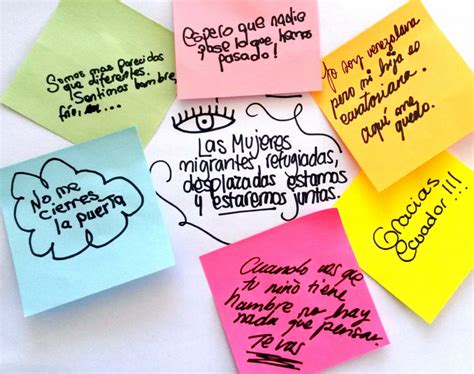 Somos mas parecidas
que diferentes.
Sentimos hambre,
frío, ...
Espero que nadie
pase lo que hemos
pasado!
Yo soy venezolana
pero mi hija es
ecuatoriana.
Aquí me
quedo.
Las Mujeres
migrantes, refugiadas,
desplazadas estamos
y estaremos juntas.
No me
cierres
la puerta
Gracias
Ecuador!!!
Cuando ves que
tu niño tiene
hambre no hay
nada que pensar.
Te vas